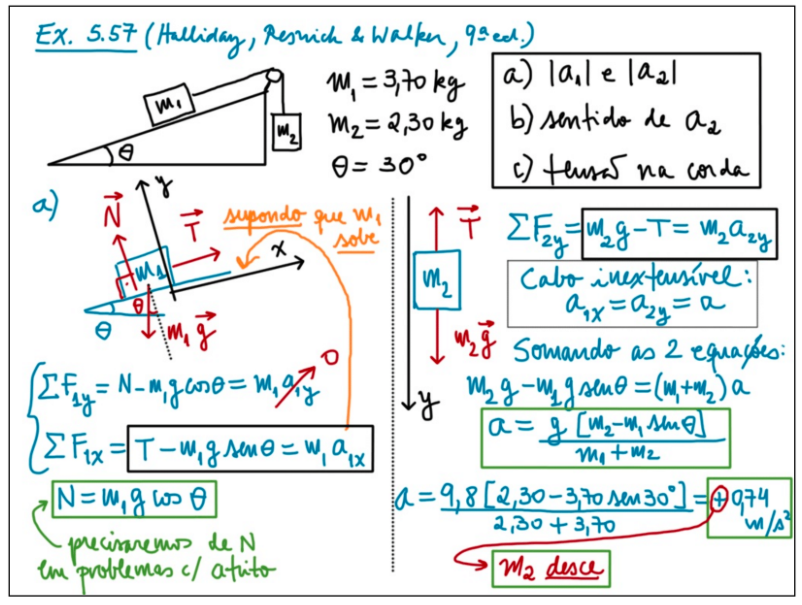 Ex. 5.57 (Halliday, Resnick & Walker, 9ª ed.)
m₁
m₂
θ
m₁ = 3,70 kg
m₂ = 2,30 kg
θ = 30°
a) |a₁| e |a₂|
b) sentido de a₂
c) tensão na corda
a)
y
N⃗
T⃗
x
m₁
θ
θ
m₁g⃗
supondo que m₁
sobe
ΣF₁y = N - m₁g cosθ = m₁a₁y 0
ΣF₁x = T - m₁g senθ = m₁a₁x
N = m₁g cos θ
precisaremos de N
em problemas c/ atrito
T⃗
m₂
m₂g⃗
y
ΣF₂y = m₂g - T = m₂a₂y
Cabo inextensível:
a₁x = a₂y = a
Somando as 2 equações:
m₂g - m₁g senθ = (m₁+m₂)a
a = g [m₂ - m₁ senθ]
m₁ + m₂
a = 9,8 [2,30 - 3,70 sen30°] = + 0,74
2,30 + 3,70
m/s²
m₂ desce